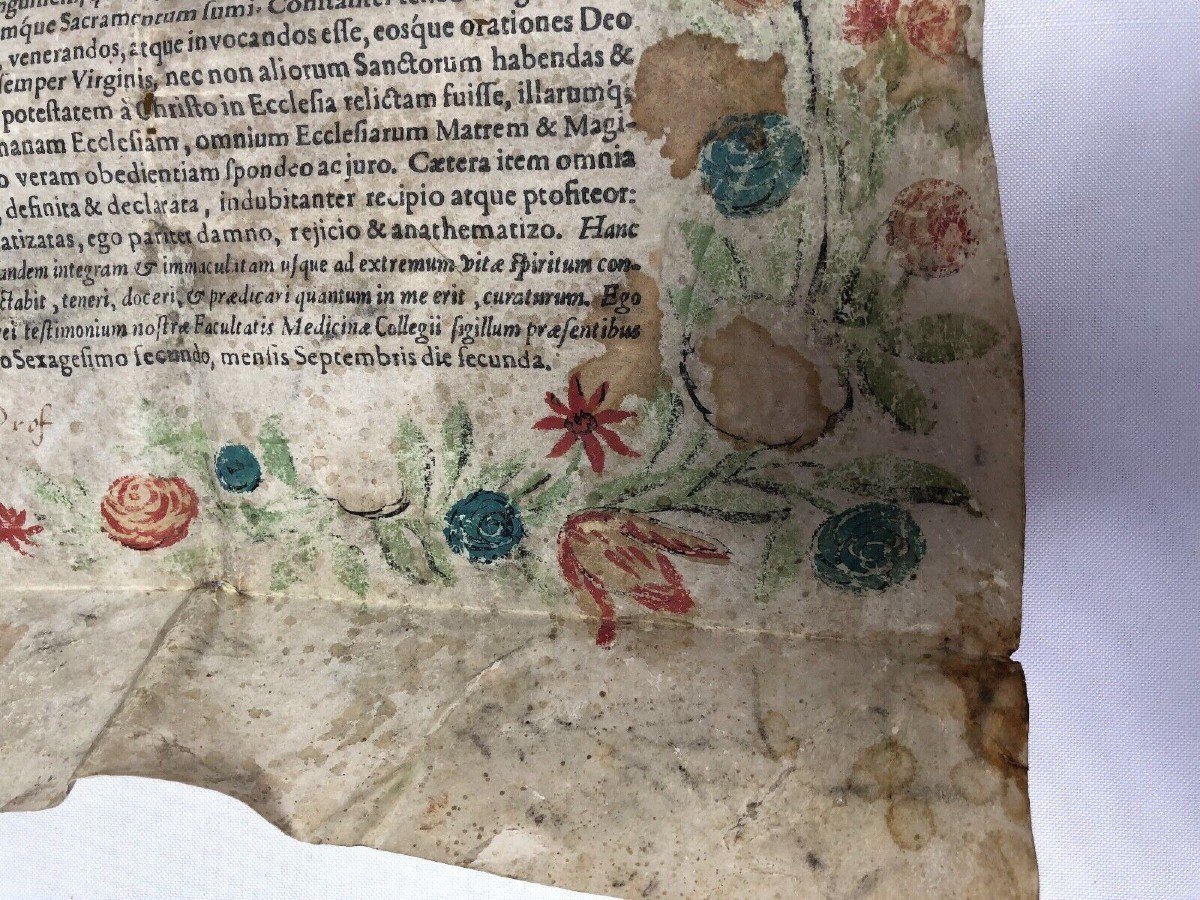 mque Sacramentorum sumi. Constanter
, venerandos, atque invocandos eſſe, eosque orationes Deo
ſemper Virginis, nec non aliorum Sanctorum habendas &
poteſtatem à Chriſto in Eccleſia relictam fuiſſe, illarumq́;
manam Eccleſiam, omnium Eccleſiarum Matrem & Magi-
o veram obedientiam ſpondeo ac juro. Cætera item omnia
, definita & declarata, indubitanter recipio atque profiteor:
atizatas, ego pariter damno, rejicio & anathematizo. Hanc
andem integram & immaculatam uſque ad extremum vitæ ſpiritum con-
ctabit, teneri, doceri, & prædicari quantum in me erit, curaturum. Ego
ei teſtimonium noſtræ Facultatis Medicinæ Collegii ſigillum præſentibus
o Sexageſimo ſecundo, menſis Septembris die ſecunda.
Prof